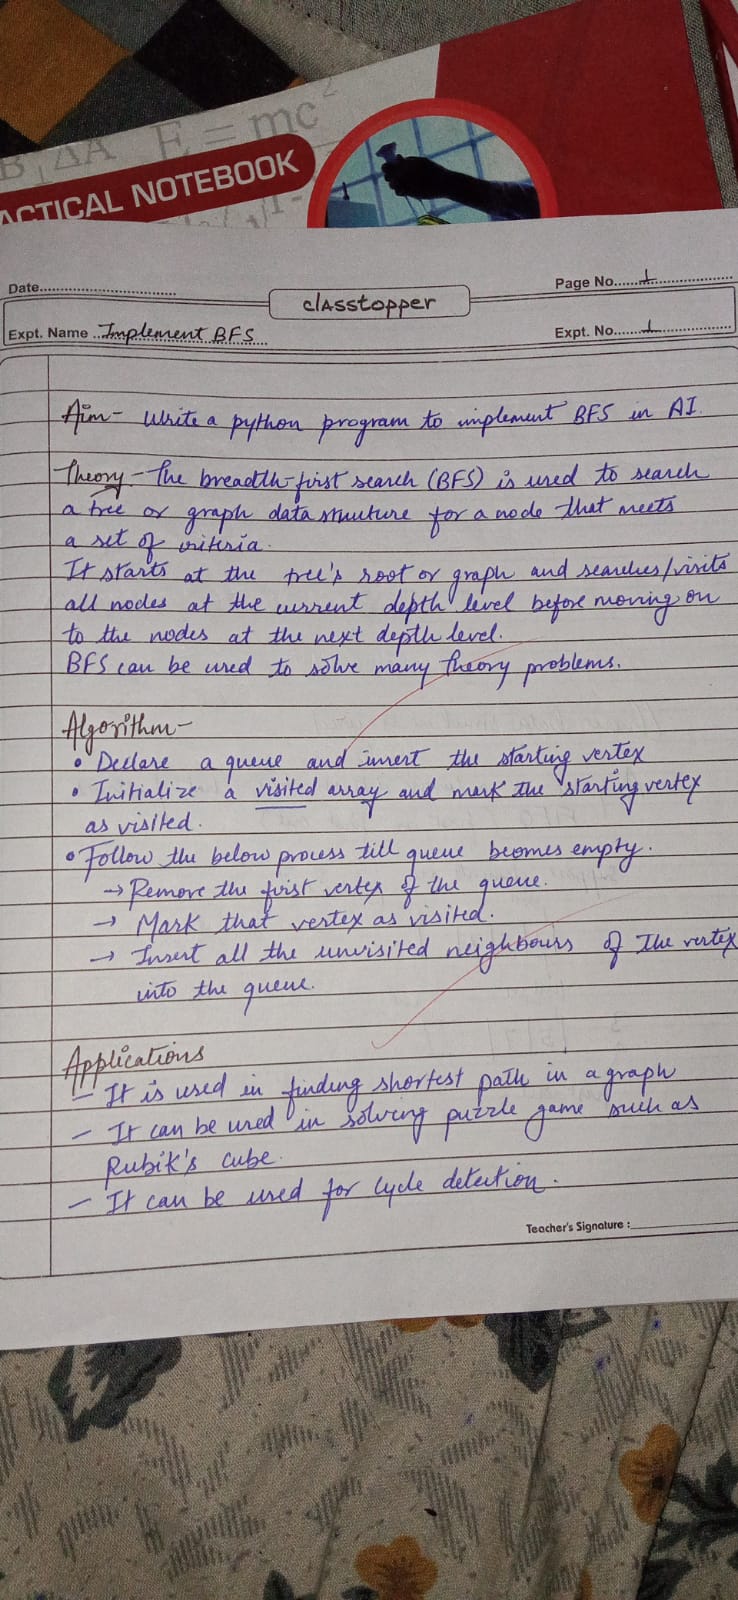 E = mc²
B₁ΔA
ACTICAL NOTEBOOK
Date
Page No. 1
classtopper
Expt. Name Implement BFS
Expt. No. 1
Aim - Write a python program to implement BFS in AI.
Theory - The breadth-first search (BFS) is used to search
a tree or graph data structure for a node that meets
a set of criteria.
It starts at the tree's root or graph and searches/visits
all nodes at the current depth level before moving on
to the nodes at the next depth level.
BFS can be used to solve many theory problems.
Algorithm -
• Declare a queue and insert the starting vertex
• Initialize a visited array and mark the starting vertex
as visited.
• Follow the below process till queue becomes empty.
→ Remove the first vertex of the queue.
→ Mark that vertex as visited.
→ Insert all the unvisited neighbours of the vertex
into the queue.
Applications
- It is used in finding shortest path in a graph
- It can be used in solving puzzle game such as
Rubik's cube.
- It can be used for cycle detection.
Teacher's Signature :